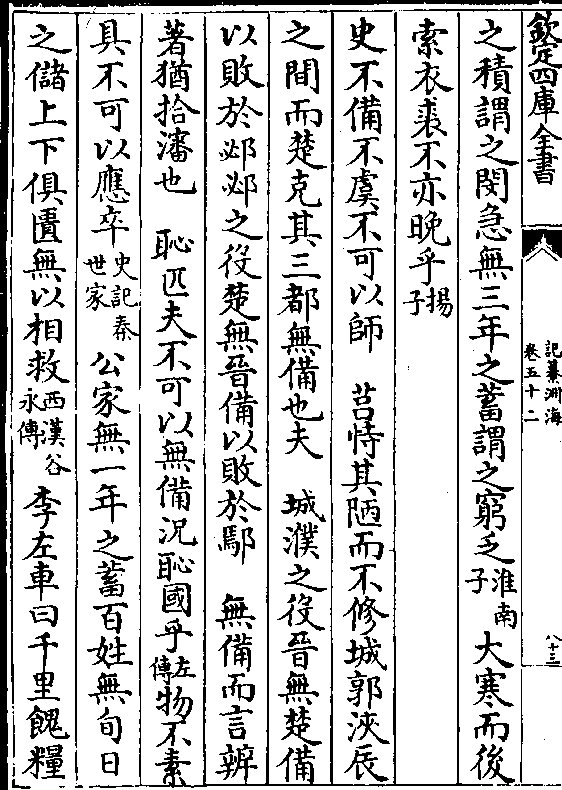 欽定四庫全書
記纂淵海
卷五十二
八十三
之積謂之閔急無三年之蓄謂之窮乏淮南子大寒而後
索衣裘不亦晚乎揚子
史不備不虞不可以師　莒恃其陋而不修城郭浹辰
之間而楚克其三都無備也夫　城濮之役晉無楚備
以敗於邲邲之役楚無晉備以敗於鄢　無備而言辨
著猶拾瀋也　恥匹夫不可以無備況恥國乎左傳物不素
具不可以應卒史記秦世家公家無一年之蓄百姓無旬日
之儲上下俱匱無以相救西漢谷永傳李左車曰千里餽糧